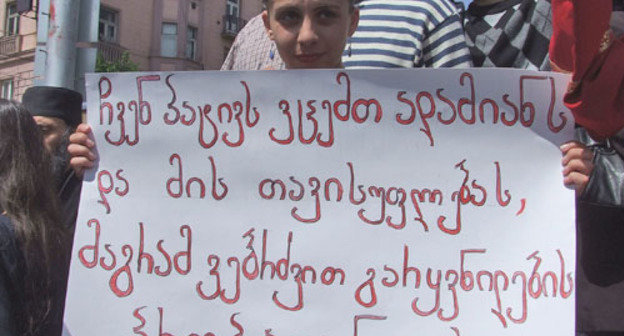 ჩვენ პატივს ვცემთ ადამიანს
და მის თავისუფლებას,
მაგრამ ვებრძვით გარყვნილების